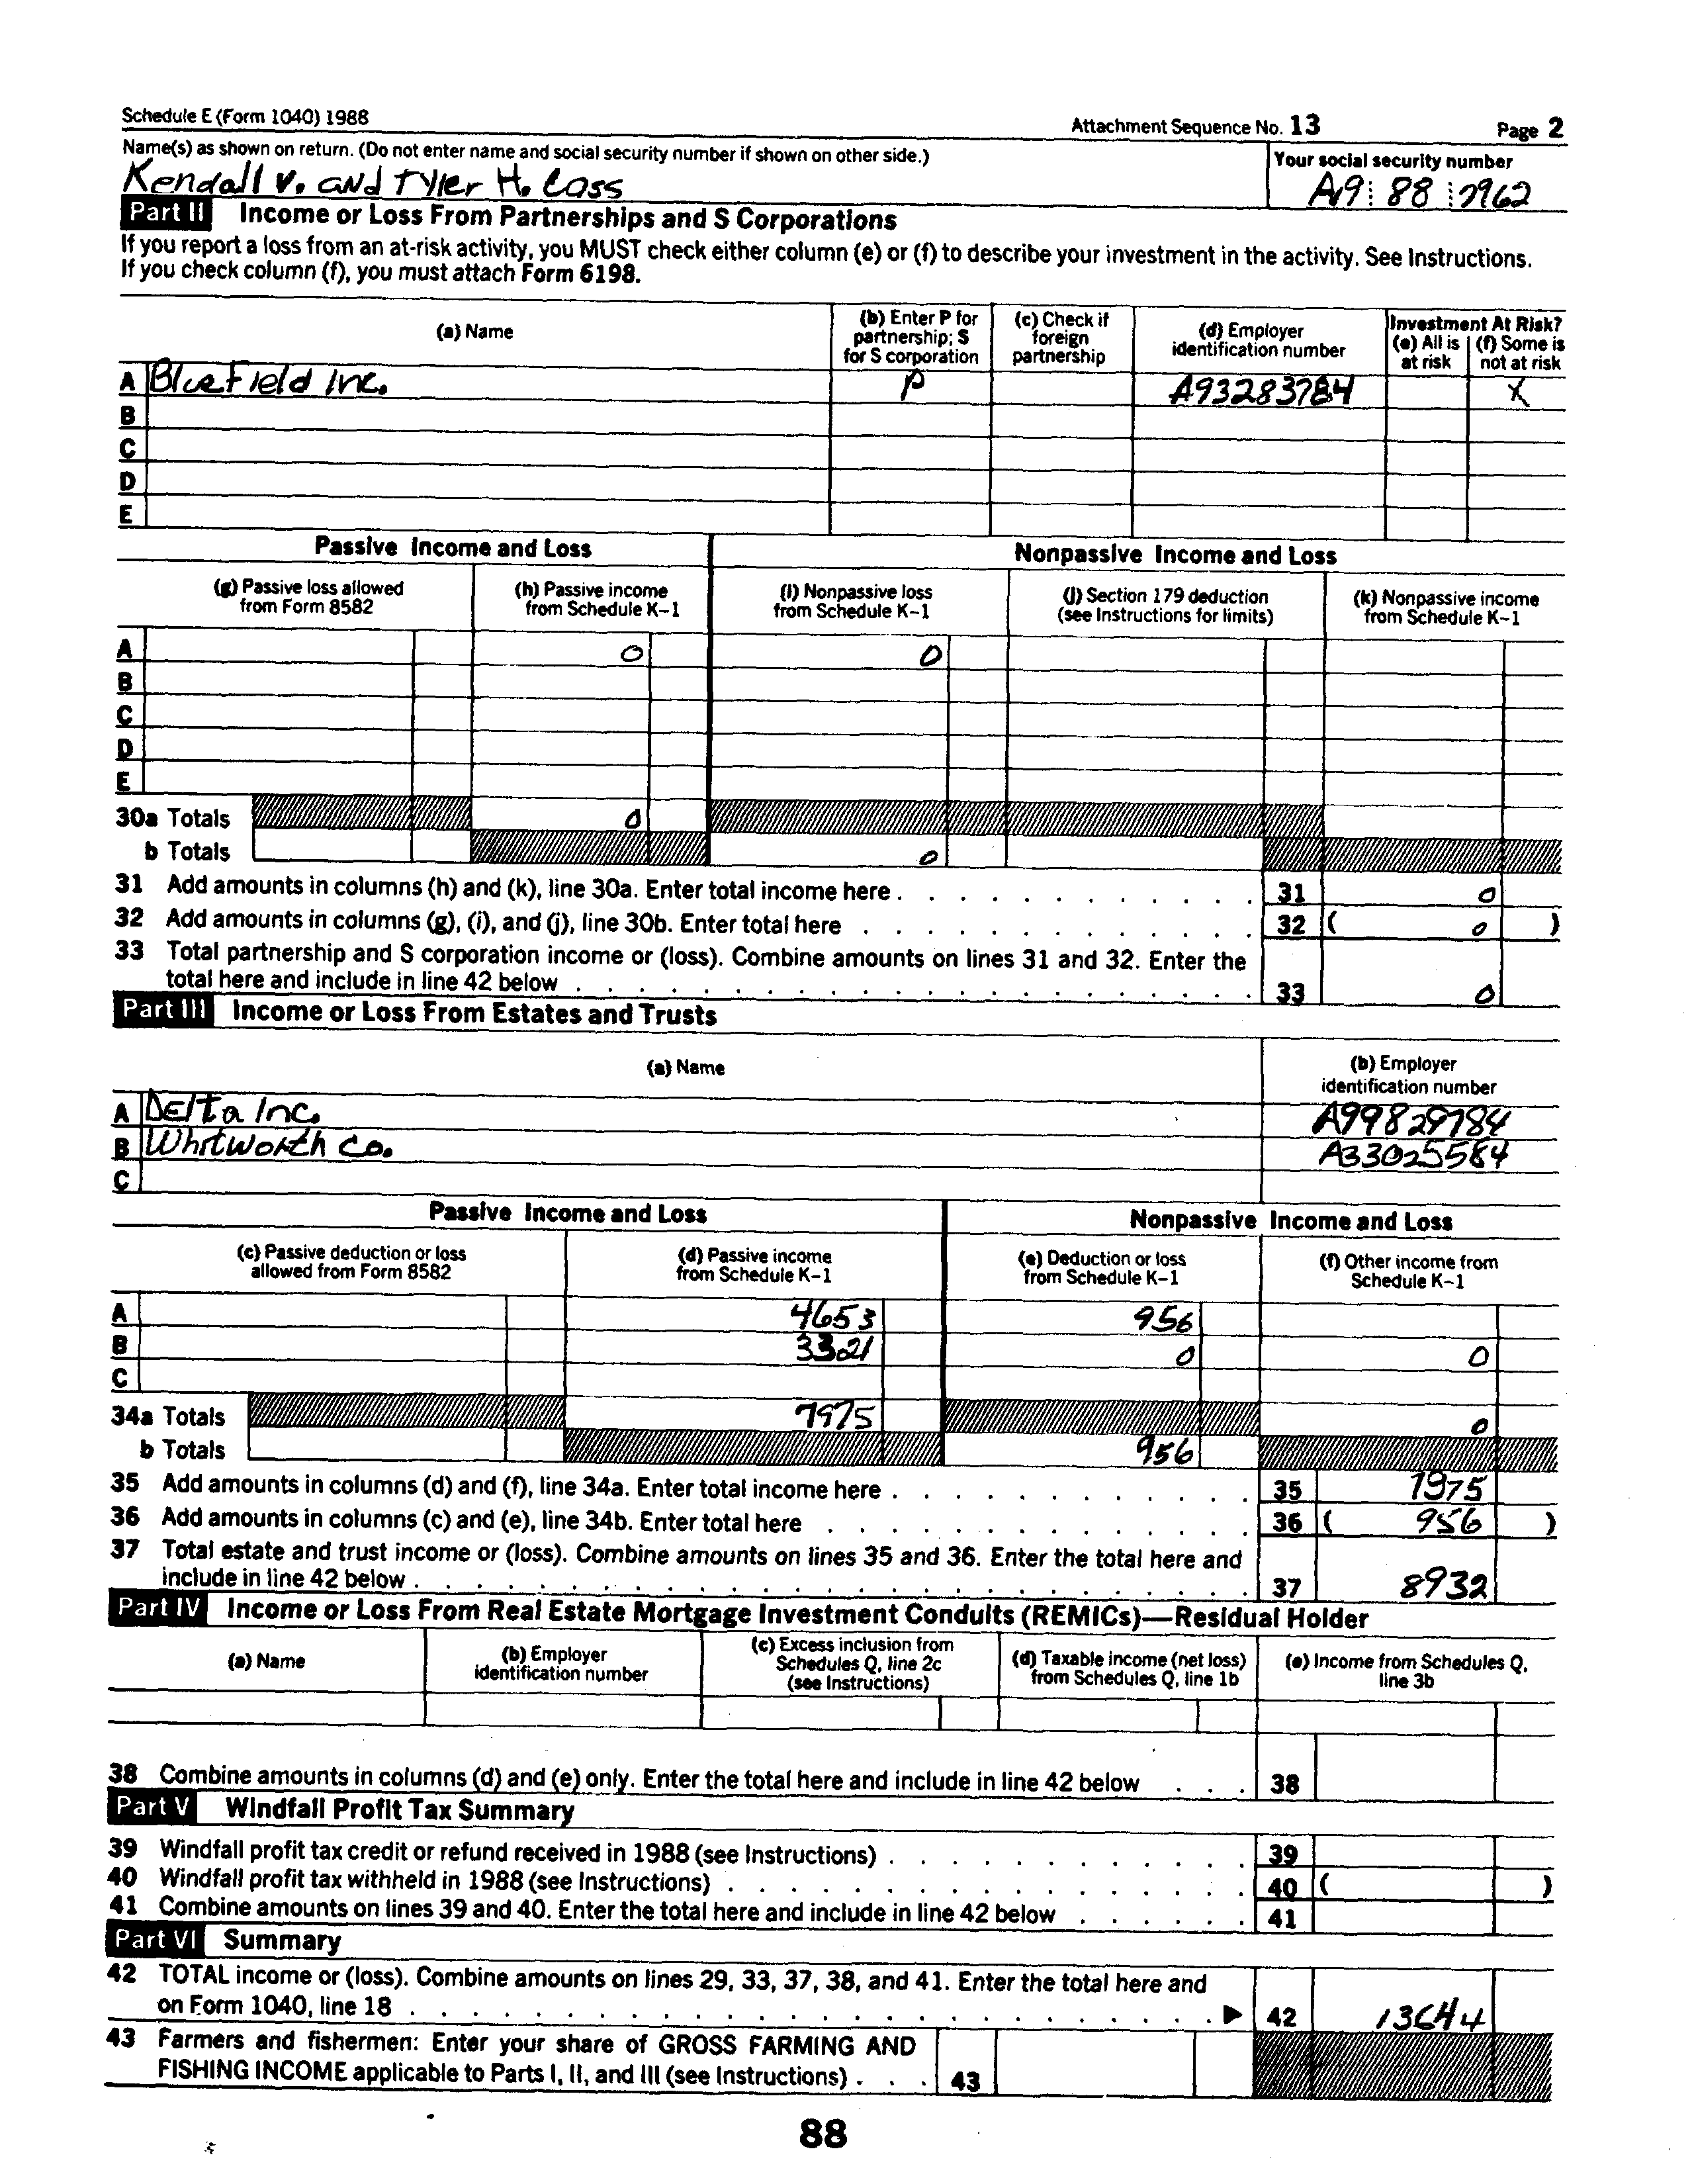 Schedule E (Form 1040) 1988
Attachment Sequence No. 13
Page 2
Name(s) as shown on return. (Do not enter name and social security number if shown on other side.)
Your social security number
Kendall V. and Tyler H. Cass
A19 88 7962
Part II Income or Loss From Partnerships and S Corporations
If you report a loss from an at-risk activity, you MUST check either column (e) or (f) to describe your investment in the activity. See Instructions.
If you check column (f), you must attach Form 6198.
(a) Name
(b) Enter P for partnership; S for S corporation
(c) Check if foreign partnership
(d) Employer identification number
Investment At Risk?
(e) All is at risk
(f) Some is not at risk
A Bluefield Inc. P A93283784 X
B
C
D
E
Passive Income and Loss
Nonpassive Income and Loss
(g) Passive loss allowed from Form 8582
(h) Passive income from Schedule K-1
(i) Nonpassive loss from Schedule K-1
(j) Section 179 deduction (see Instructions for limits)
(k) Nonpassive income from Schedule K-1
A 0 0
B
C
D
E
30a Totals 0
b Totals 0
31 Add amounts in columns (h) and (k), line 30a. Enter total income here . 31 0
32 Add amounts in columns (g), (i), and (j), line 30b. Enter total here . 32 ( 0 )
33 Total partnership and S corporation income or (loss). Combine amounts on lines 31 and 32. Enter the
total here and include in line 42 below . 33 0
Part III Income or Loss From Estates and Trusts
(a) Name
(b) Employer identification number
A Delta Inc. A99829784
B Whitworth Co. A33025584
C
Passive Income and Loss
Nonpassive Income and Loss
(c) Passive deduction or loss allowed from Form 8582
(d) Passive income from Schedule K-1
(e) Deduction or loss from Schedule K-1
(f) Other income from Schedule K-1
A 4653 956
B 3321 0 0
C
34a Totals 7975 0
b Totals 956
35 Add amounts in columns (d) and (f), line 34a. Enter total income here . 35 7975
36 Add amounts in columns (c) and (e), line 34b. Enter total here . 36 ( 956 )
37 Total estate and trust income or (loss). Combine amounts on lines 35 and 36. Enter the total here and
include in line 42 below . 37 8932
Part IV Income or Loss From Real Estate Mortgage Investment Conduits (REMICs)—Residual Holder
(a) Name
(b) Employer identification number
(c) Excess inclusion from Schedules Q, line 2c (see Instructions)
(d) Taxable income (net loss) from Schedules Q, line 1b
(e) Income from Schedules Q, line 3b
38 Combine amounts in columns (d) and (e) only. Enter the total here and include in line 42 below . . . 38
Part V Windfall Profit Tax Summary
39 Windfall profit tax credit or refund received in 1988 (see Instructions) . 39
40 Windfall profit tax withheld in 1988 (see Instructions) . 40 ( )
41 Combine amounts on lines 39 and 40. Enter the total here and include in line 42 below . 41
Part VI Summary
42 TOTAL income or (loss). Combine amounts on lines 29, 33, 37, 38, and 41. Enter the total here and
on Form 1040, line 18 . ▶ 42 13644
43 Farmers and fishermen: Enter your share of GROSS FARMING AND
FISHING INCOME applicable to Parts I, II, and III (see Instructions) . . . 43
88